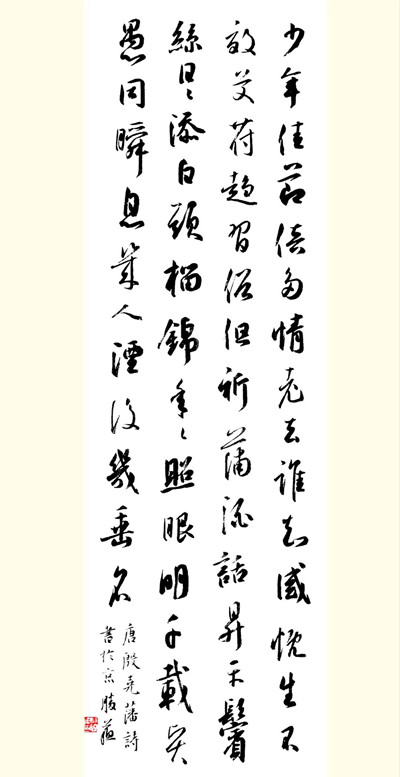 少年佳節倍多情老去誰知感慨生不
效艾苻趨習俗但祈蒲酒話昇平鬢
絲日〻添白頭榴錦年〻照眼明千載賢
愚同瞬息幾人湮沒幾垂名
唐殷堯藩詩
書於京